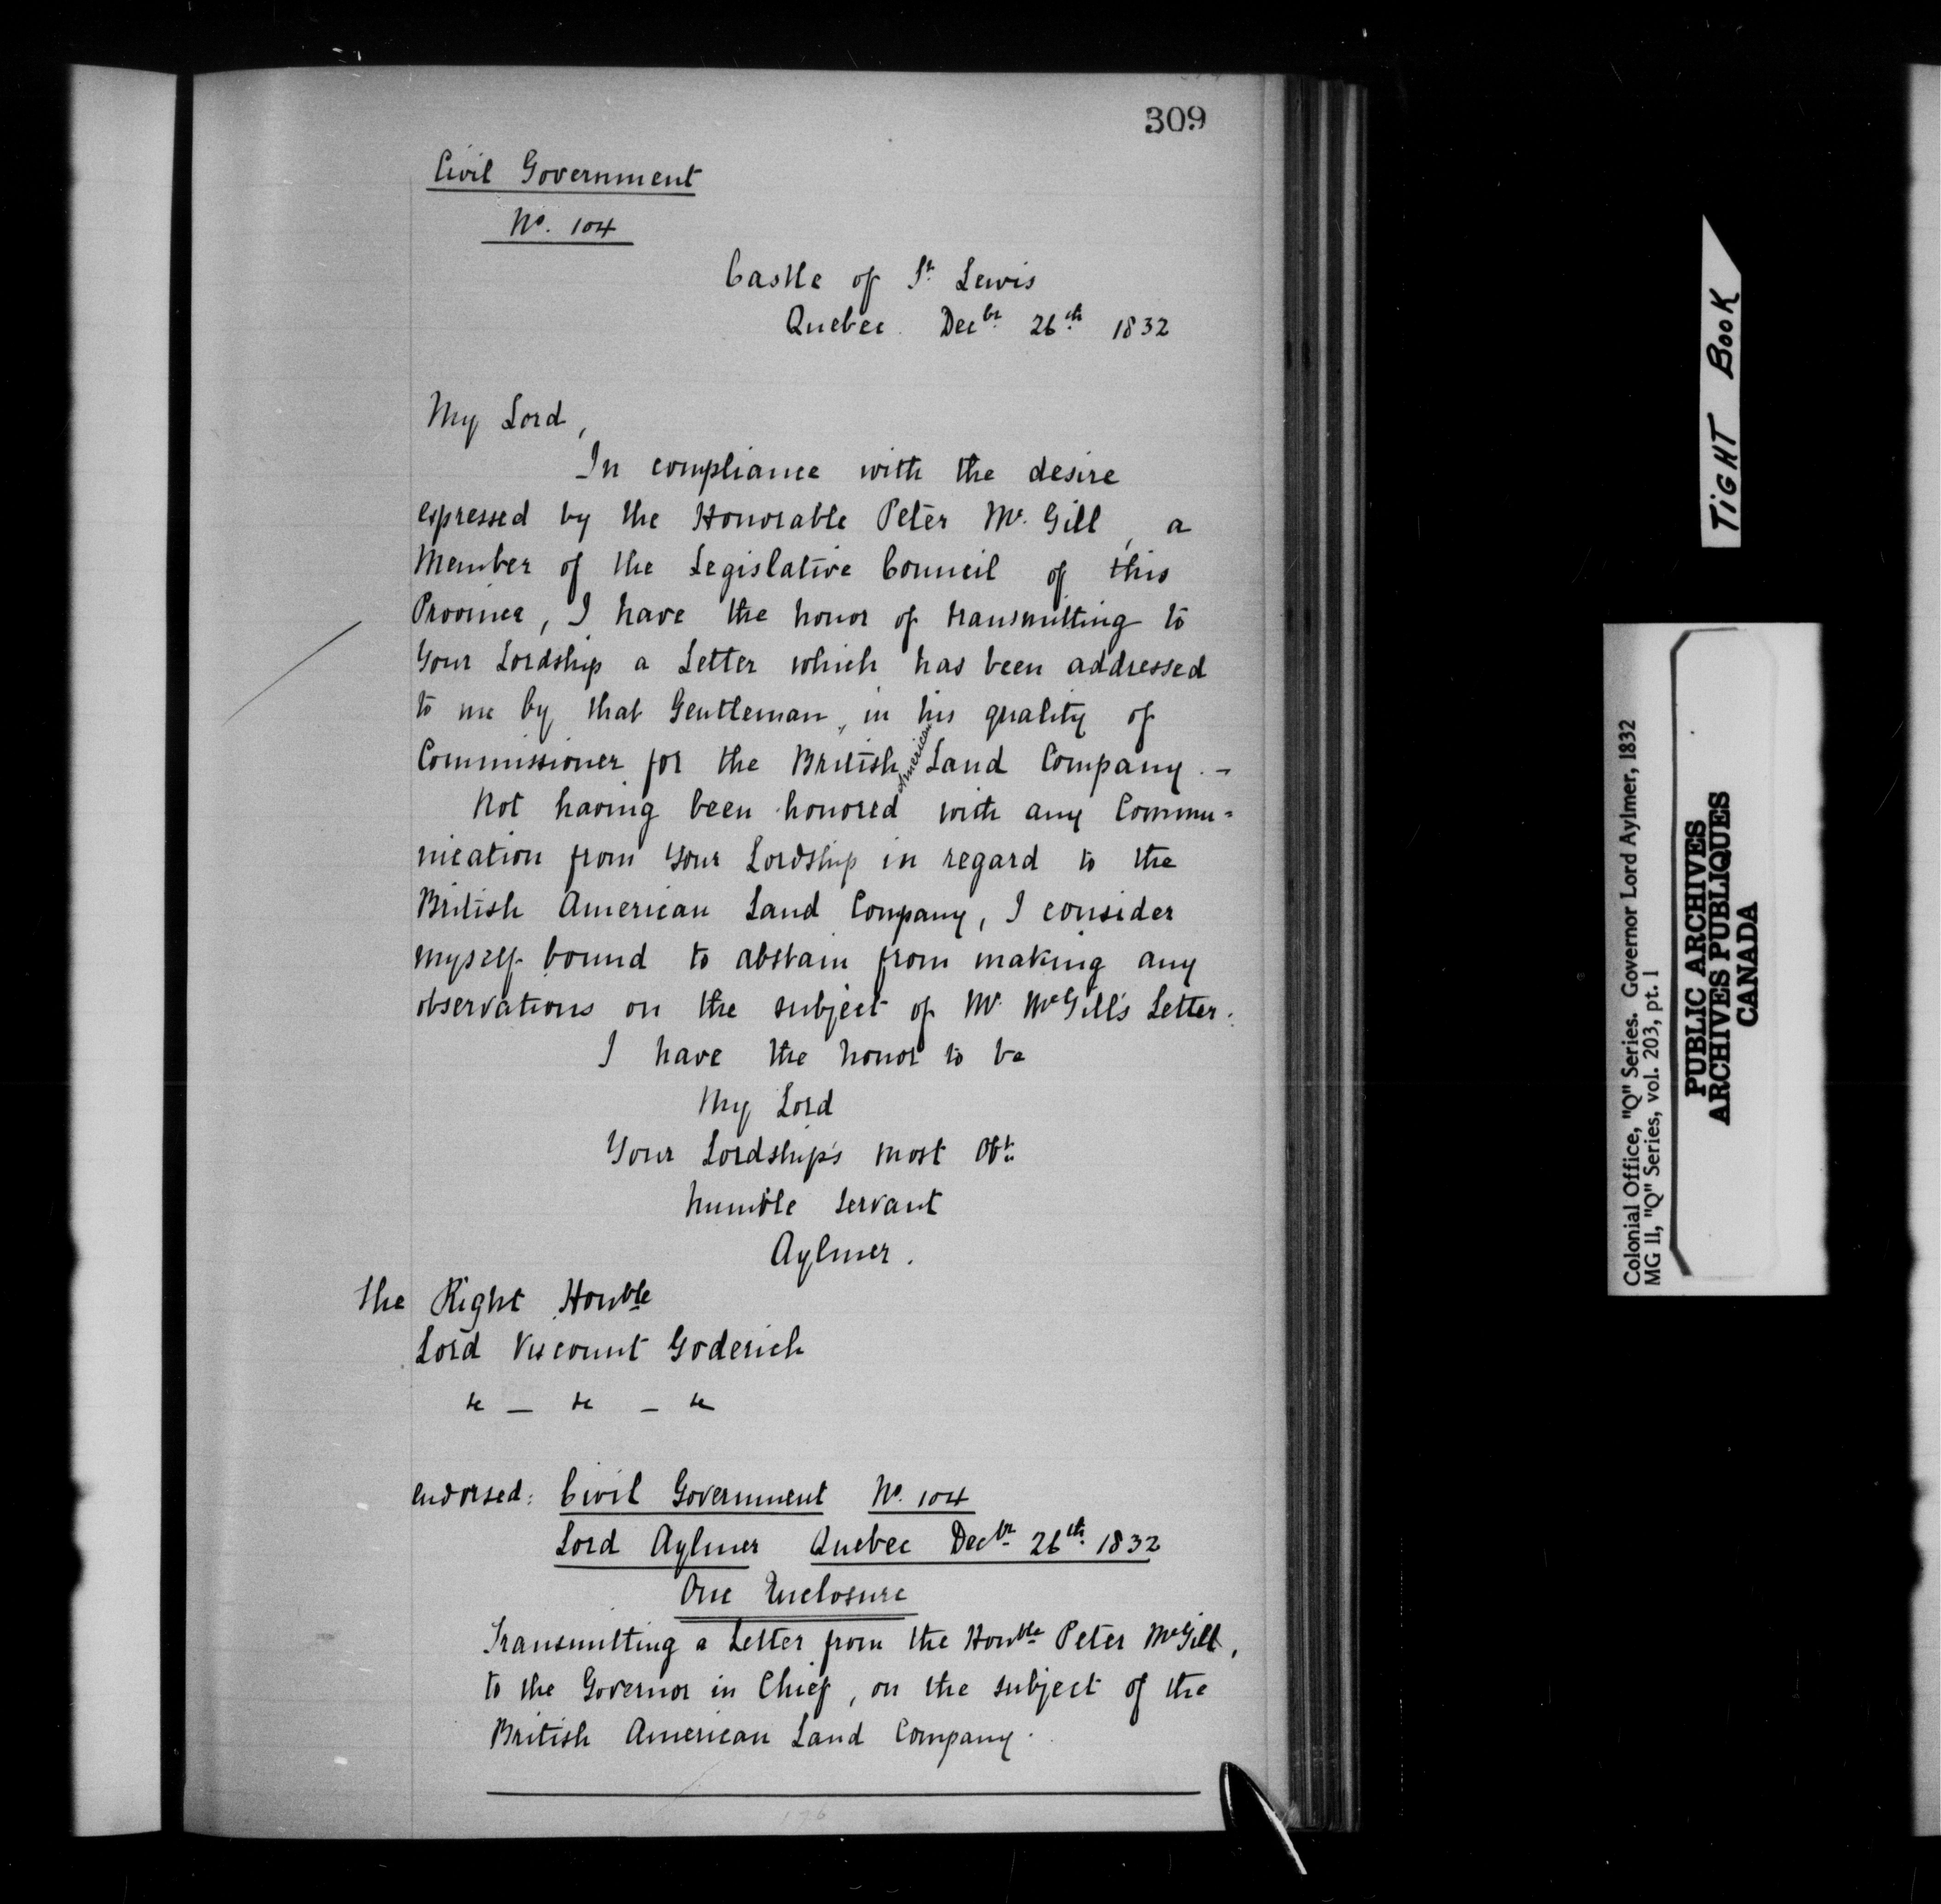 309
Civil Government
No. 104
Castle of St. Lewis
Quebec Decbr. 26th. 1832
My Lord,
In compliance with the desire
expressed by the Honorable Peter Mc. Gill, a
Member of the Legislative Council of this
Province, I have the honor of transmitting to
Your Lordship a Letter which has been addressed
to me by that Gentleman, in his quality of
Commissioner for the British American Land Company. –
Not having been honored with any Commu=
nication from Your Lordship in regard to the
British American Land Company, I consider
myself bound to abstain from making any
observations on the subject of Mr. McGill's Letter.
I have the honor to be
My Lord
Your Lordship's most Obt.
humble servant
Aylmer.
The Right Honble
Lord Viscount Goderich
&c – &c – &c
endorsed: Civil Government No. 104
Lord Aylmer Quebec Decbr. 26th. 1832
One Enclosure
Transmitting a Letter from the Honble Peter McGill,
to the Governor in Chief, on the subject of the
British American Land Company.
176
TIGHT BOOK
Colonial Office, "Q" Series. Governor Lord Aylmer, 1832
MG 11, "Q" Series, vol. 203, pt. 1
PUBLIC ARCHIVES
ARCHIVES PUBLIQUES
CANADA